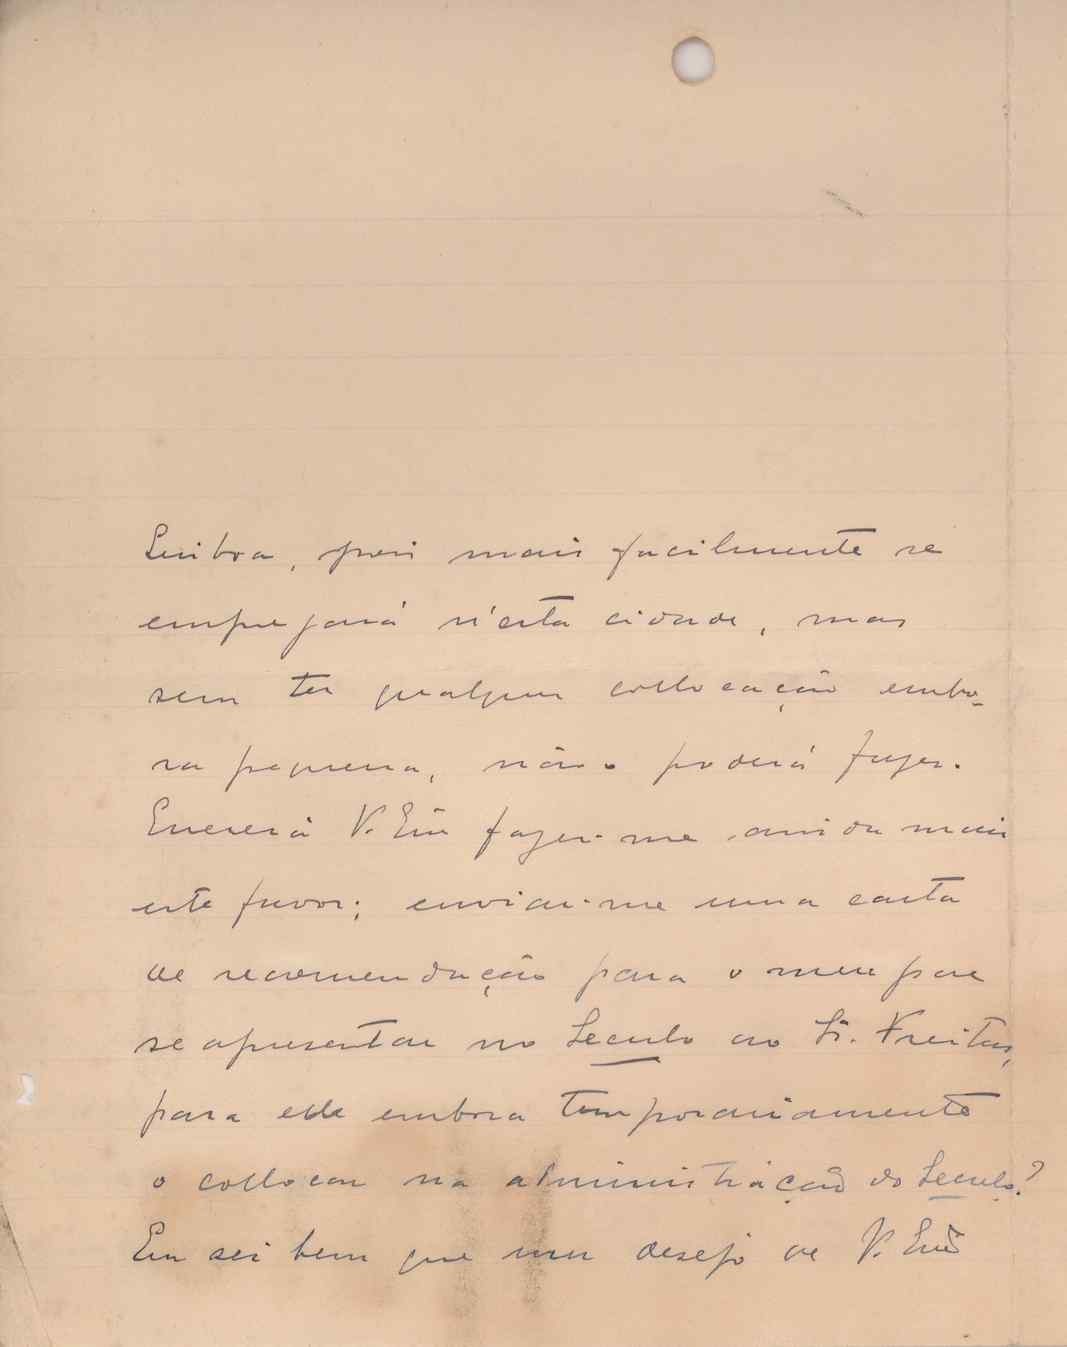 Lisboa, pois mais facilmente se
empregará n'esta cidade, mas
sem ter qualquer collocação embo-
ra pequena, não o poderá fazer.
Quererá V. Exª fazer-me ainda mais
este favor; enviar-me uma carta
de recomendação para o meu pae
se apresentar no Seculo ao Sr. Freitas,
para elle embora temporariamente
o collocar na administração do Seculo?
Eu sei bem que um desejo de V. Exª